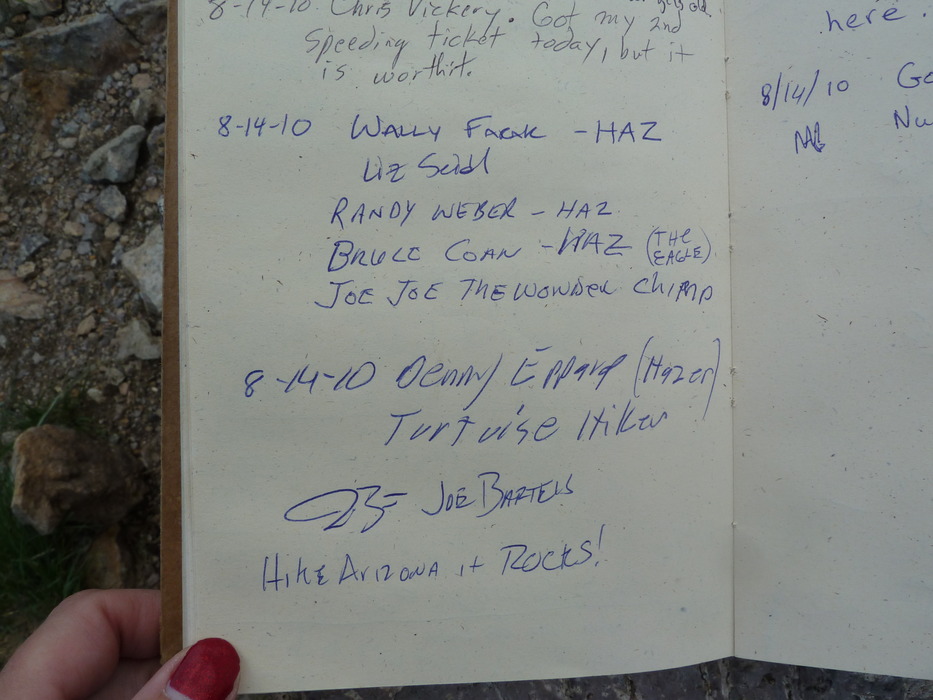 8-14-10 Chris Vickery. Got my 2nd
speeding ticket today, but it
is worthit.
8-14-10 WALLY FARAK - HAZ
Liz Seidl
RANDY WEBER - HAZ
BRUCE COAN - HAZ (THE EAGLE)
JOE JOE THE WONDER CHIMP
8-14-10 Denny Eppard (Hazer)
Turtuise Hiker
JOE BARTELS
HIKE ARIZONA it ROCKS!
here.
8/14/10